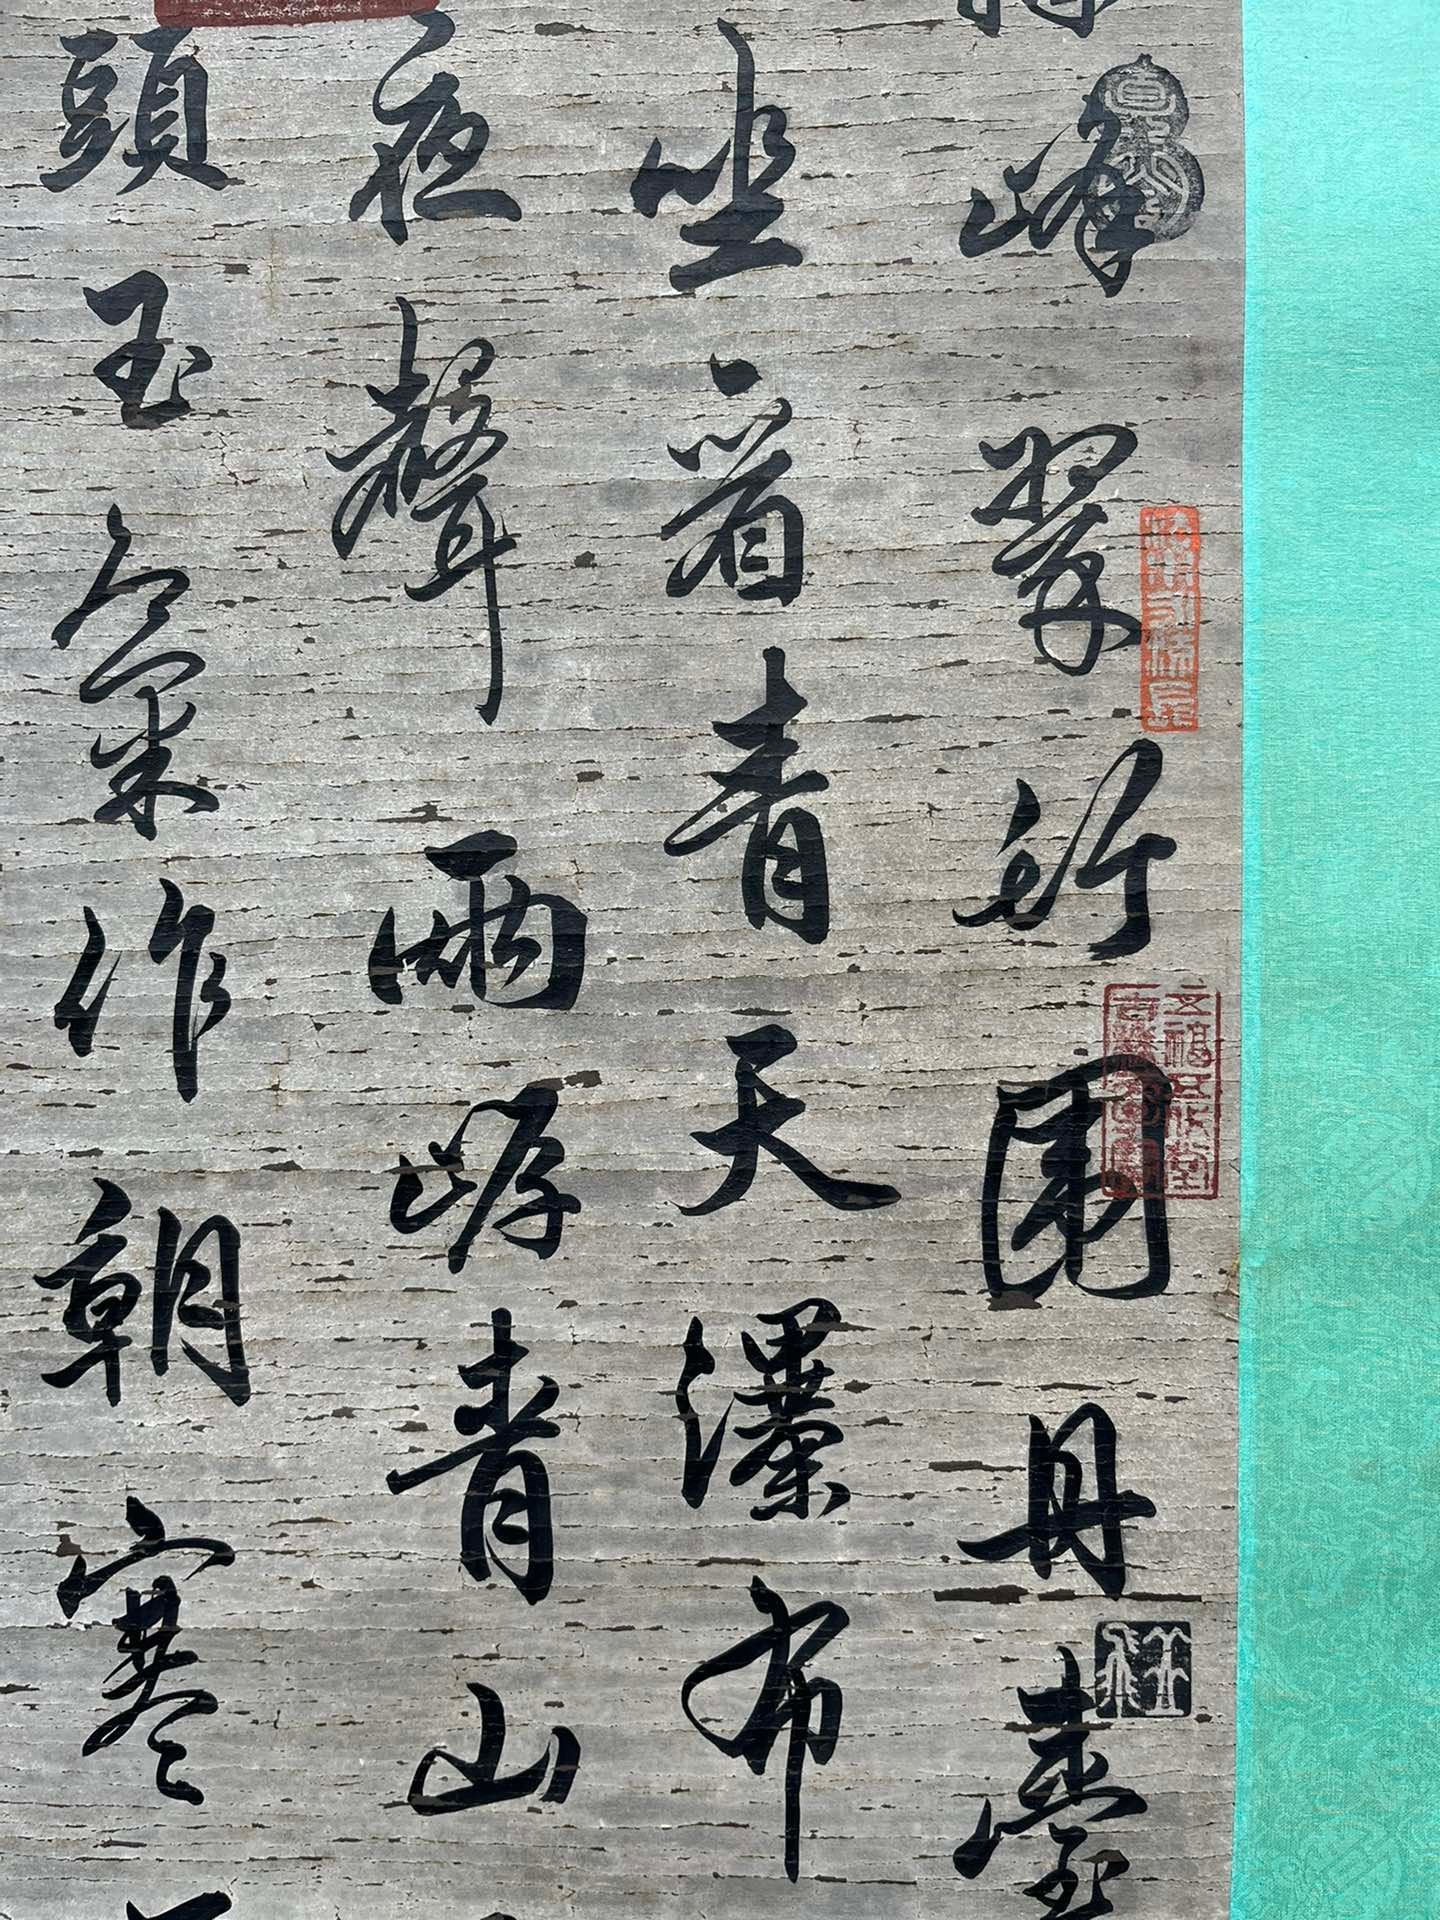 峰翠竹圍丹臺
坐看青天瀑布
夜聲兩崿青山
頭玉氣作朝寒